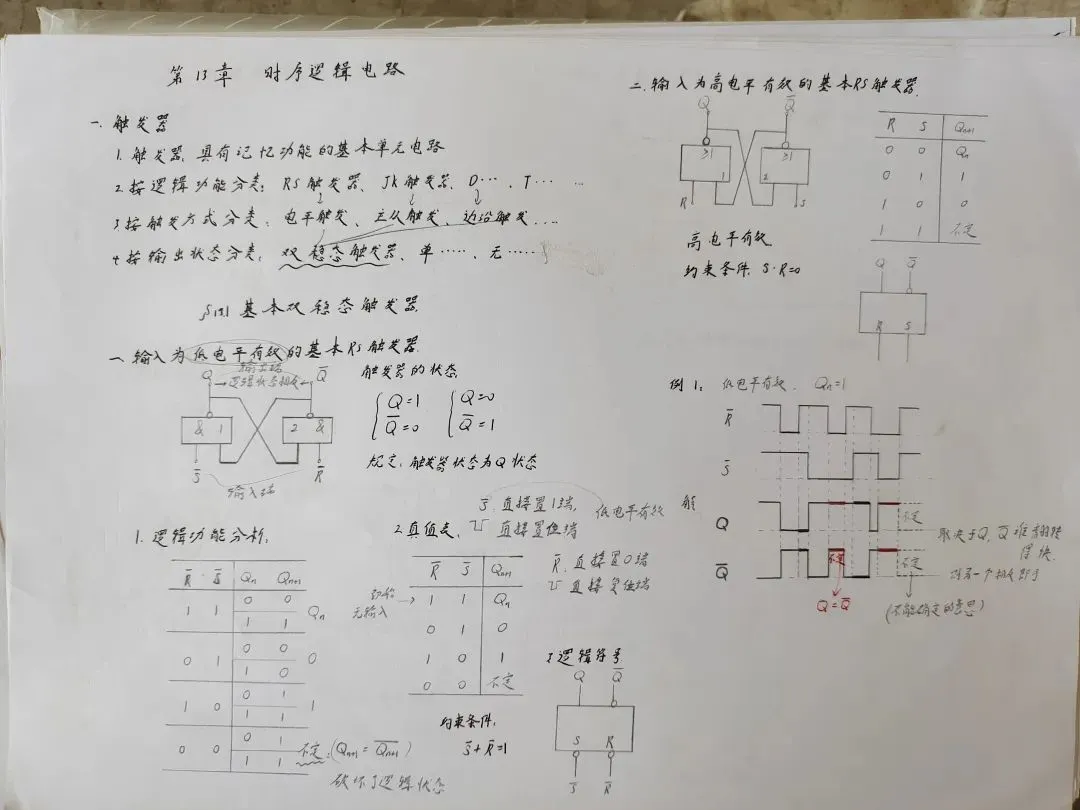 第13章 时序逻辑电路
一.触发器
1.触发器,具有记忆功能的基本单元电路
2.按逻辑功能分类: RS触发器、JK触发器、D…、T… …
3.按触发方式分类: 电平触发、主从触发、边沿触发…
4.按输出状态分类: 双稳态触发器、单……、无……
§13.1 基本双稳态触发器
一.输入为低电平有效的基本RS触发器
输出端
Q →逻辑状态相反← Q̅
& 1 2 &
S̅ R̅
输入端
触发器的状态
Q=1 Q=0
Q̅=0 Q̅=1
规定:触发器状态为Q状态
1.逻辑功能分析.
R̅ S̅ Qn Qn+1
1 1 0 0 Qn
1 1
0 1 0 0 0
1 0
1 0 0 1 1
1 1
0 0 0 1 不定:(Qn+1=Q̅n+1)
1 1
破坏了逻辑状态
2.真值表.
S̅ 直接置1端,
直接置位端
低电平有效
R̅ 直接置0端
直接复位端
R̅ S̅ Qn+1
无输入 → 1 1 Qn
0 1 0
1 0 1
0 0 不定
约束条件:
S̅+R̅=1
3逻辑符号
Q Q̅
S R
S̅ R̅
二.输入为高电平有效的基本RS触发器
Q Q̅
≥1 ≥1
1 2
R S
R S Qn+1
0 0 Qn
0 1 1
1 0 0
1 1 不定
高电平有效
约束条件. S·R=0
Q Q̅
R S
例1: 低电平有效. Qn=1
R̅
S̅
解
Q 不定
Q̅ 不定 不定
取决于Q,Q̅谁翻转
得快.
另一个相反即可
Q=Q̅
(不能确定的意思)